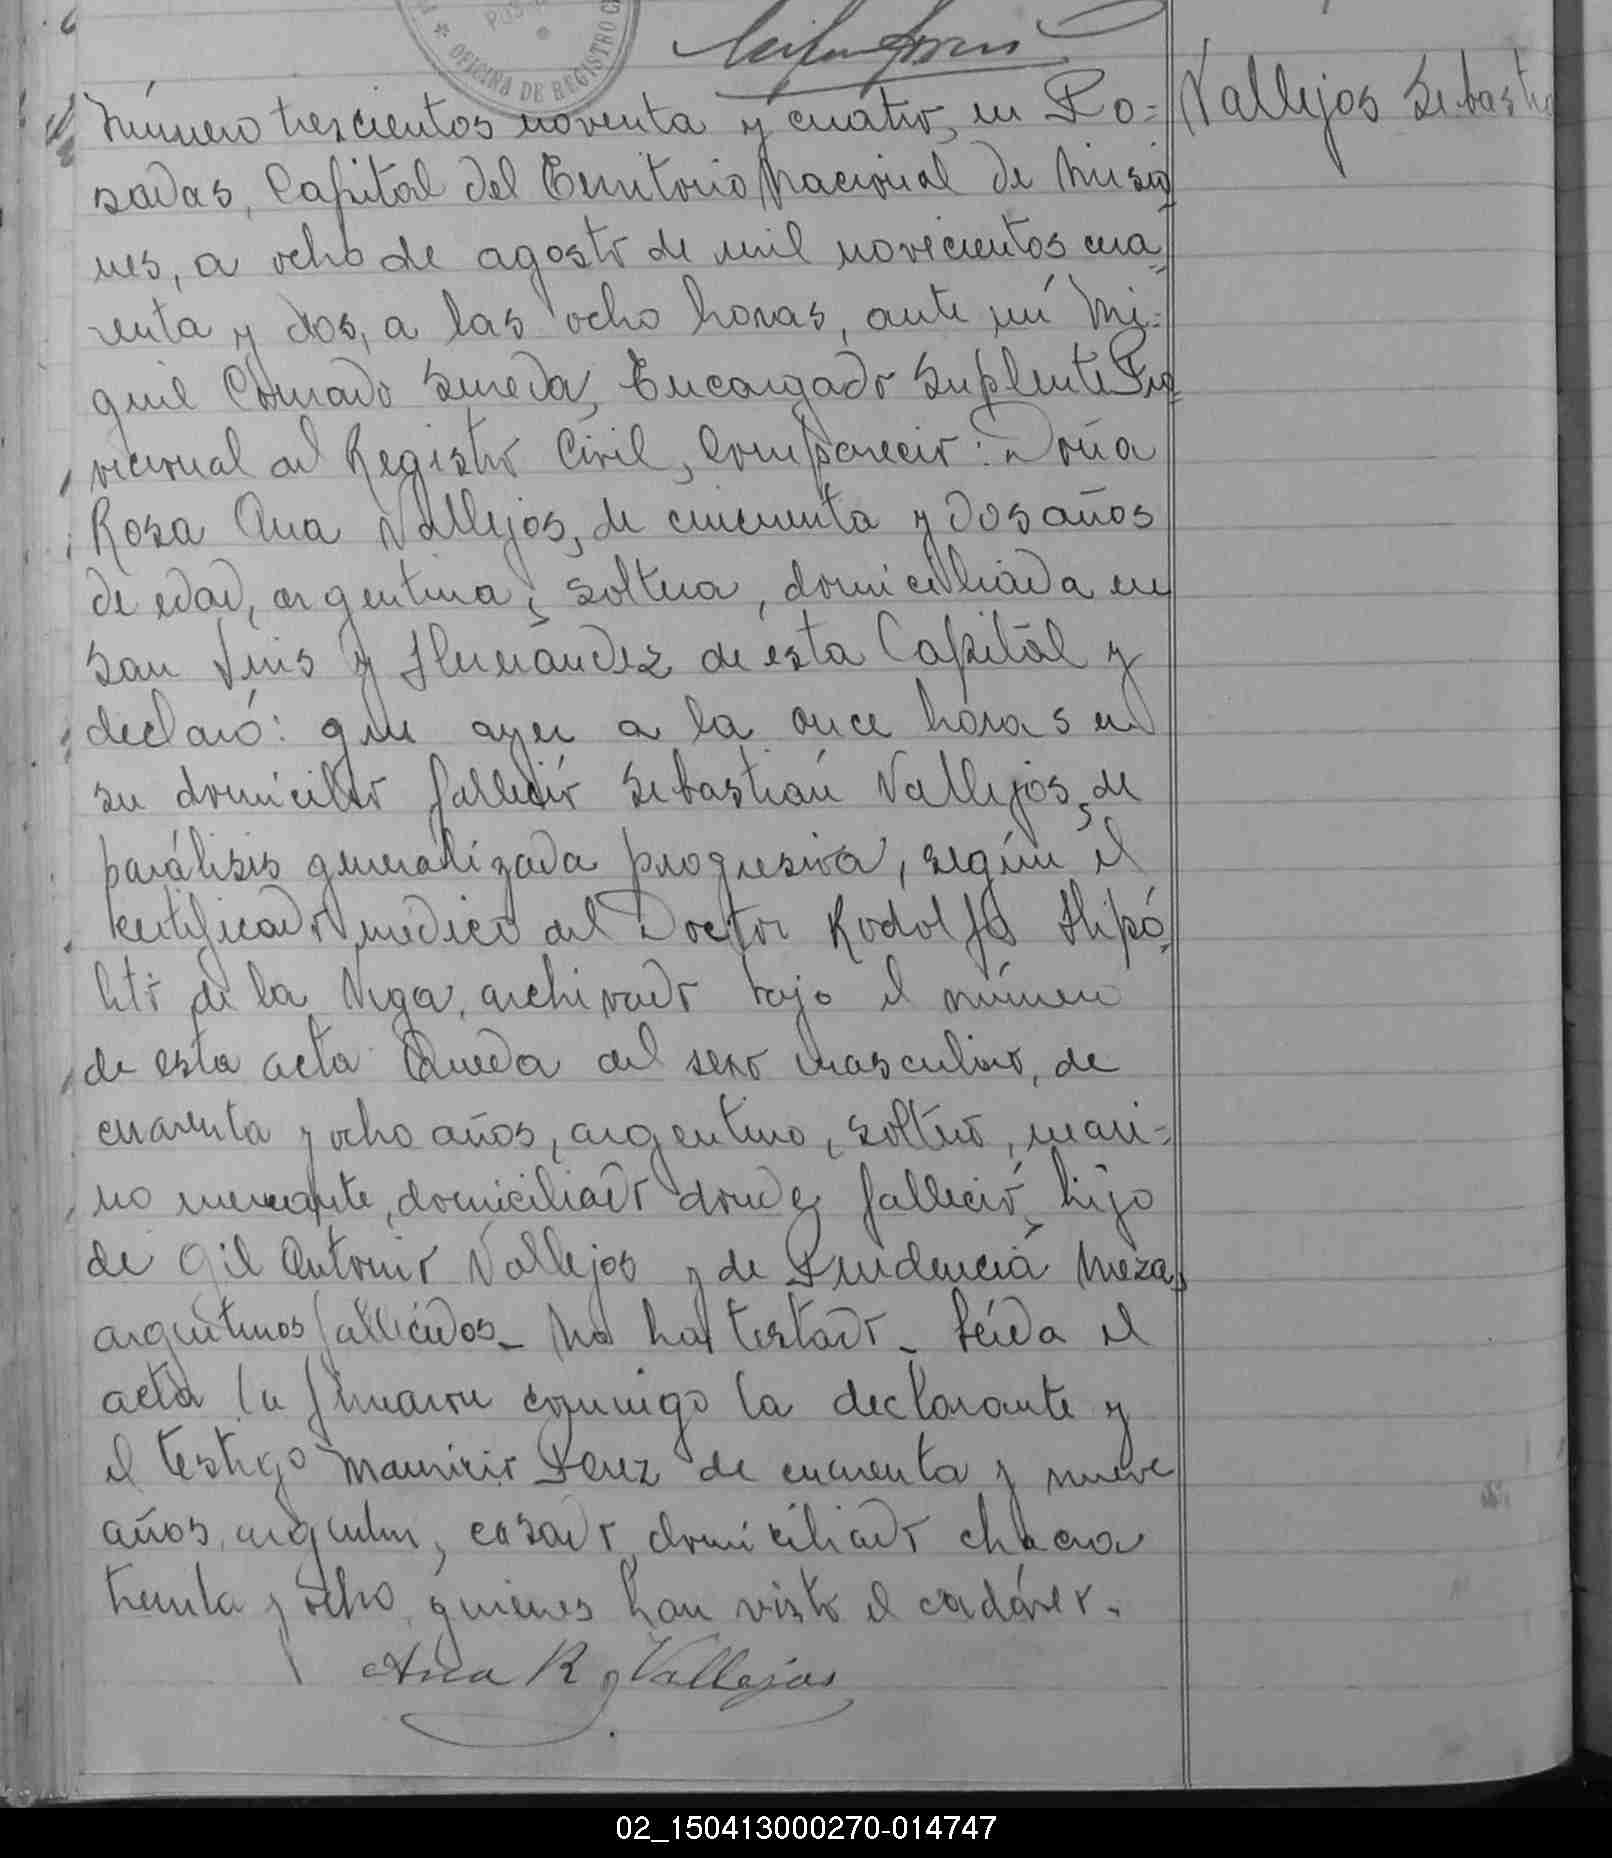 OFICINA DE REGISTRO
Número trescientos noventa y cuatro, en Po=
Vallejos Sebastia
sadas, Capital del Territorio Nacional de Misio
nes, a ocho de agosto de mil novecientos cua=
renta y dos, a las ocho horas, ante mí Mi=
guel Conrado Sureda, Encargado Suplente Pro=
vicional del Registro Civil, Compareció: Doña
Rosa Ana Vallejos, de cincuenta y dos años
de edad, argentina, soltera, domiciliada en
San Luis y Hernández de ésta Capital y
declaró: que ayer a la once horas en
su domicilio falleció Sebastián Vallejos, de
parálisis generalizada progresiva, según el
certificado médico del Doctor Rodolfo Hipó=
lito de la Vega, archivado bajo el número
de esta acta. Queda del sexo masculino, de
cuarenta y ocho años, argentino, soltero, mari=
no mercante, domiciliado donde falleció, hijo
de Gil Antonio Vallejos y de Prudencia Meza,
argentinos fallecidos_ No ha testado_ Leída el
acta la firmaron conmigo la declarante y
el testigo Mauricio Perez de cuarenta y nueve
años, argentino, casado domiciliado chacra
treinta y ocho, quienes han visto el cadáver.
Ana R. Vallejos
02_150413000270-014747